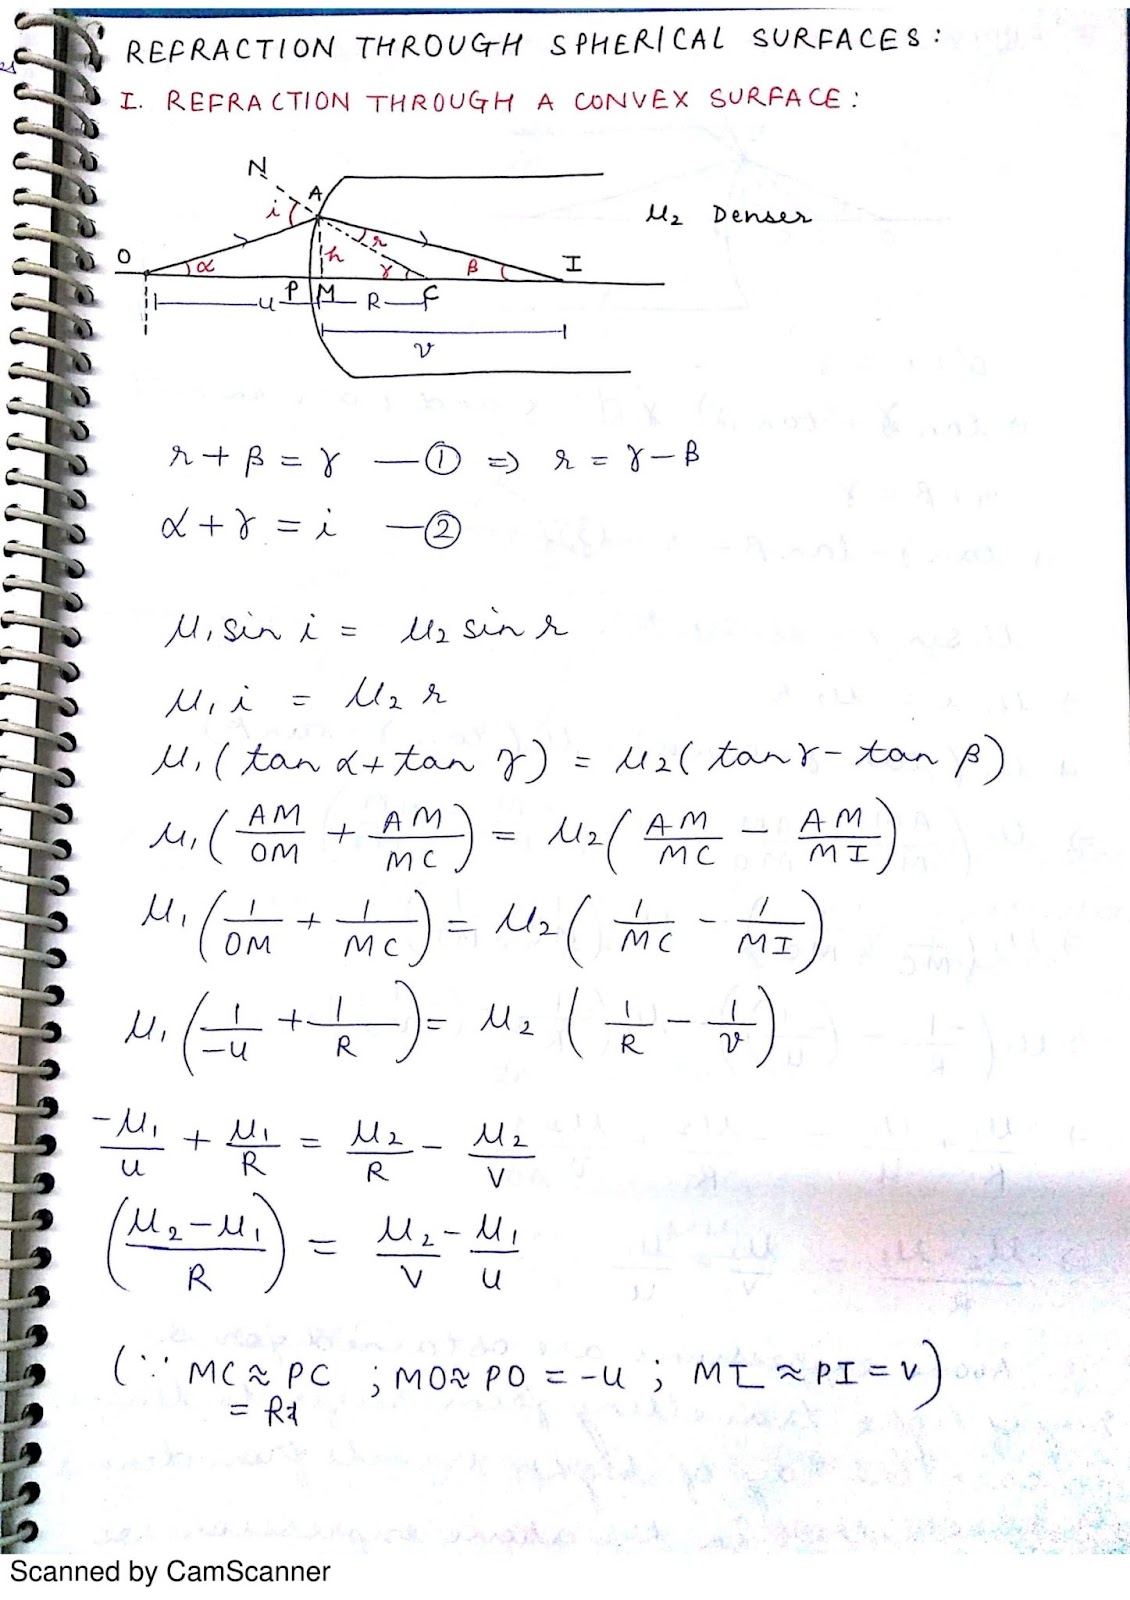 REFRACTION THROUGH SPHERICAL SURFACES:
I. REFRACTION THROUGH A CONVEX SURFACE:
N
A
i
μ₂ Denser
r
h
O
α
γ
β
I
P M C
u
R
v
r + β = γ —① ⇒ r = γ – β
α + γ = i —②
μ₁ sin i = μ₂ sin r
μ₁ i = μ₂ r
μ₁ (tan α + tan γ) = μ₂ (tan γ – tan β)
μ₁ (AM/OM + AM/MC) = μ₂ (AM/MC – AM/MI)
μ₁ (1/OM + 1/MC) = μ₂ (1/MC – 1/MI)
μ₁ (1/-u + 1/R) = μ₂ (1/R – 1/v)
-μ₁/u + μ₁/R = μ₂/R – μ₂/v
(μ₂ – μ₁/R) = μ₂/v – μ₁/u
(∵ MC ≈ PC ; MO ≈ PO = -u ; MI ≈ PI = v)
= R
Scanned by CamScanner